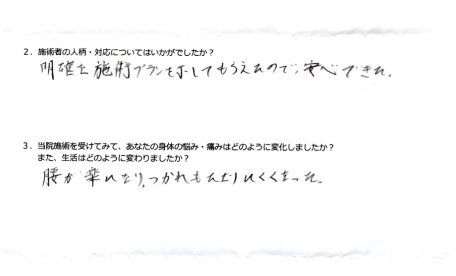 ２．施術者の人柄・対応についてはいかがでしたか？
明確な施術プランを示してもらえたので、安心できた。
３．当院施術を受けてみて、あなたの身体の悩み・痛みはどのように変化しましたか？
また、生活はどのように変わりましたか？
腰が楽になり、つかれもたまりにくくなった。